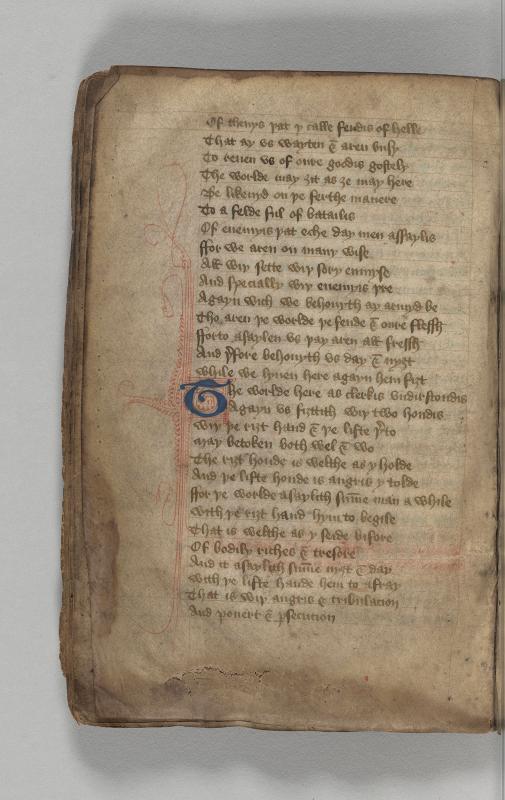 Of theuys þat y calle fendis of helle
That ay vs wayten & aren busy
To reuen vs of oure goodis gostely
The worlde may ȝit as ȝe may here
Be likenyd on þe ferthe manere
To a felde ful of batailis
Of enemyis þat eche day men assaylis
ffor we aren on many wise
Alle wiþ sette wiþ sory enmyse
And specially wiþ enemyis þre
Agayn wich we behouyth ay armyd be
Tho aren þe worlde þe fende & oure flessh
fforto asaylen vs þay aren alle fressh
And þfore behouyth vs day & nyȝt
while we lyuen here agayn hem fiȝt
The worlde here as clerkis vndirstondis
Agayn vs fiȝtith wiþ two hondis
wiþ þe riȝt hand & þe lifte þto
may betoken both wel & wo
The riȝt honde is welthe as y holde
And þe lifte honde is angris y tolde
ffor þe worlde asaylith sūme man a while
with þe riȝt hand hym to begile
That is welthe as y seide bifore
Of bodily riches & tresore
And it asaylith sūme nyȝt & day
with þe lifte hande hem to afray
That is wiþ angris & tribulacion
And pouert & psecucion